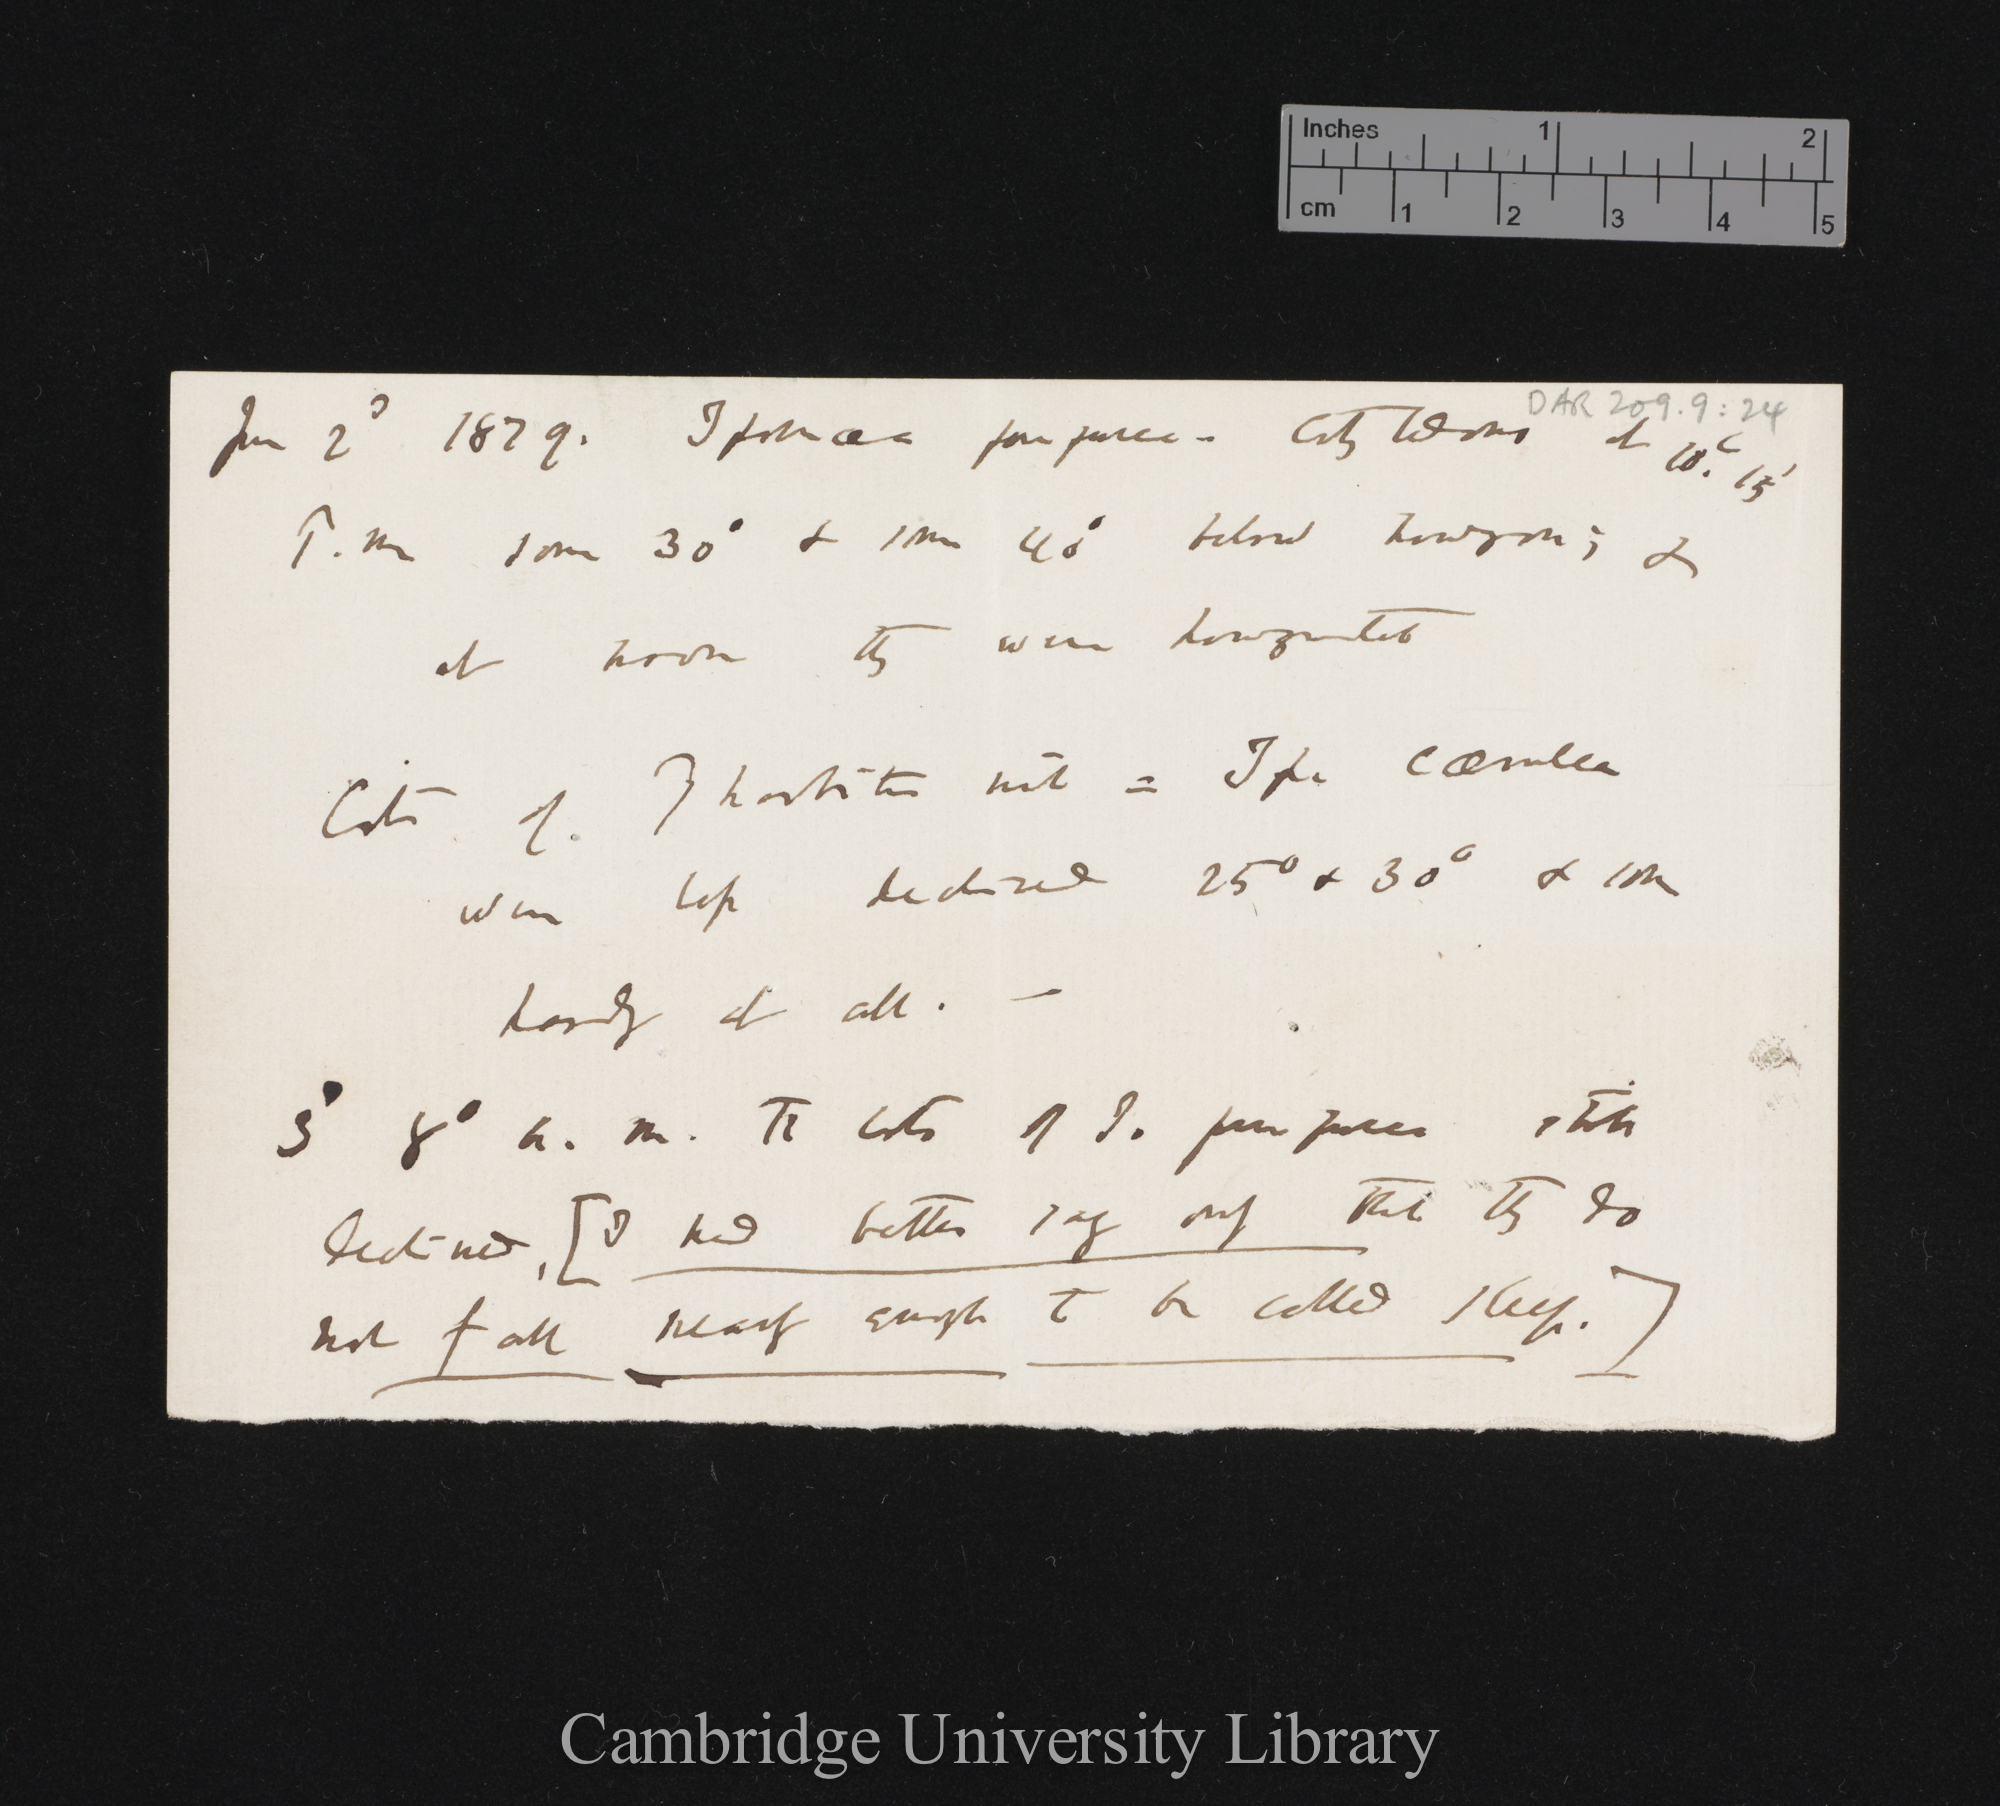 Inches 1 2
cm 1 2 3 4 5
DAR 209.9:24
Jun 2d 1879. Ipomœa purpurea - Cotyledons at 10°. 15'
P.m some 30° & some 40° below horizon; &
at noon they were horizontal
Cots of Pharbitis nil = Ipo. cærulea
were less declined 25° & 30° & some
hardly at all. —
3d 8° a. m. The cots of I. purpurea little
declined, [I had better say only that they do
not fall nearly enough to be called sleep.]
Cambridge University Library